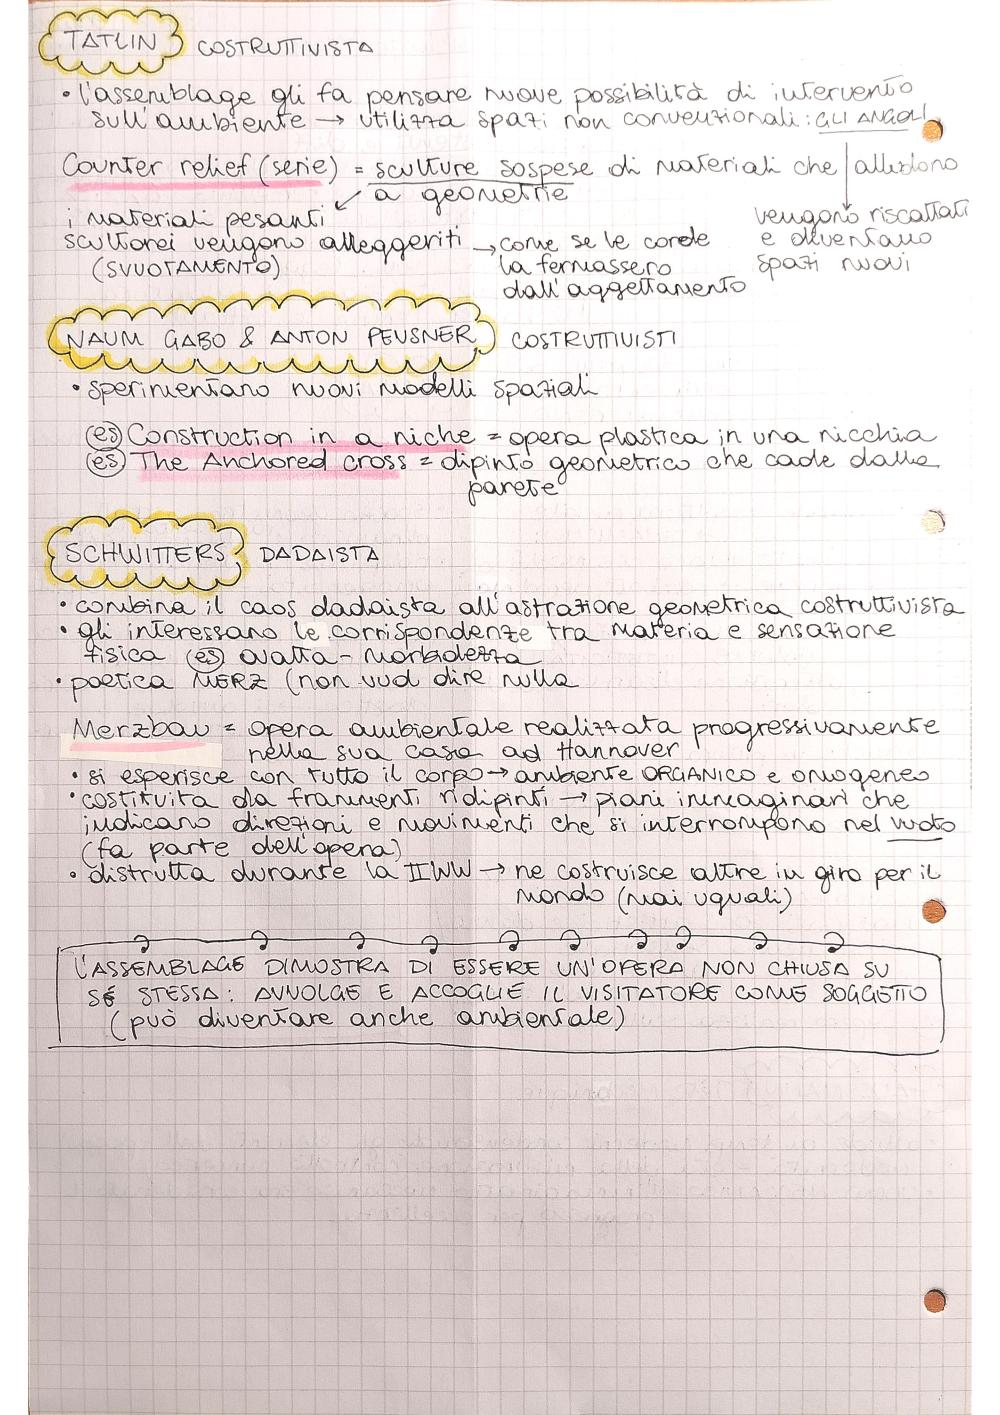 TATLIN COSTRUTTIVISTA
• l'assemblage gli fa pensare nuove possibilità di intervento
sull'ambiente → utilizza spazi non convenzionali: GLI ANGOLI
Counter relief (serie) = sculture sospese di materiali che alludono
a geometrie
i materiali pesanti
scultorei vengono alleggeriti → come se le corde
(SVUOTAMENTO) la fermassero
dall'aggettamento
vengono riscattati
e diventano
spazi nuovi
NAUM GABO & ANTON PEUSNER COSTRUTTIVISTI
• sperimentano nuovi modelli spaziali
(es) Construction in a niche = opera plastica in una nicchia
(es) The Anchored cross = dipinto geometrico che cade dalla
parete
SCHWITTERS DADAISTA
• combina il caos dadaista all'astrazione geometrica costruttivista
• gli interessano le corrispondenze tra materia e sensazione
fisica (es) ovatta - morbidezza
• poetica MERZ (non vuol dire nulla
Merzbau = opera ambientale realizzata progressivamente
nella sua casa ad Hannover
• si esperisce con tutto il corpo → ambiente ORGANICO e omogeneo
• costituita da frammenti ridipinti → piani immaginari che
indicano direzioni e movimenti che si interrompono nel vuoto
(fa parte dell'opera)
• distrutta durante la IIWW → ne costruisce altre in giro per il
mondo (mai uguali)
L'ASSEMBLAGE DIMOSTRA DI ESSERE UN'OPERA NON CHIUSA SU
SÉ STESSA: AVVOLGE E ACCOGLIE IL VISITATORE COME SOGGETTO
(può diventare anche ambientale)